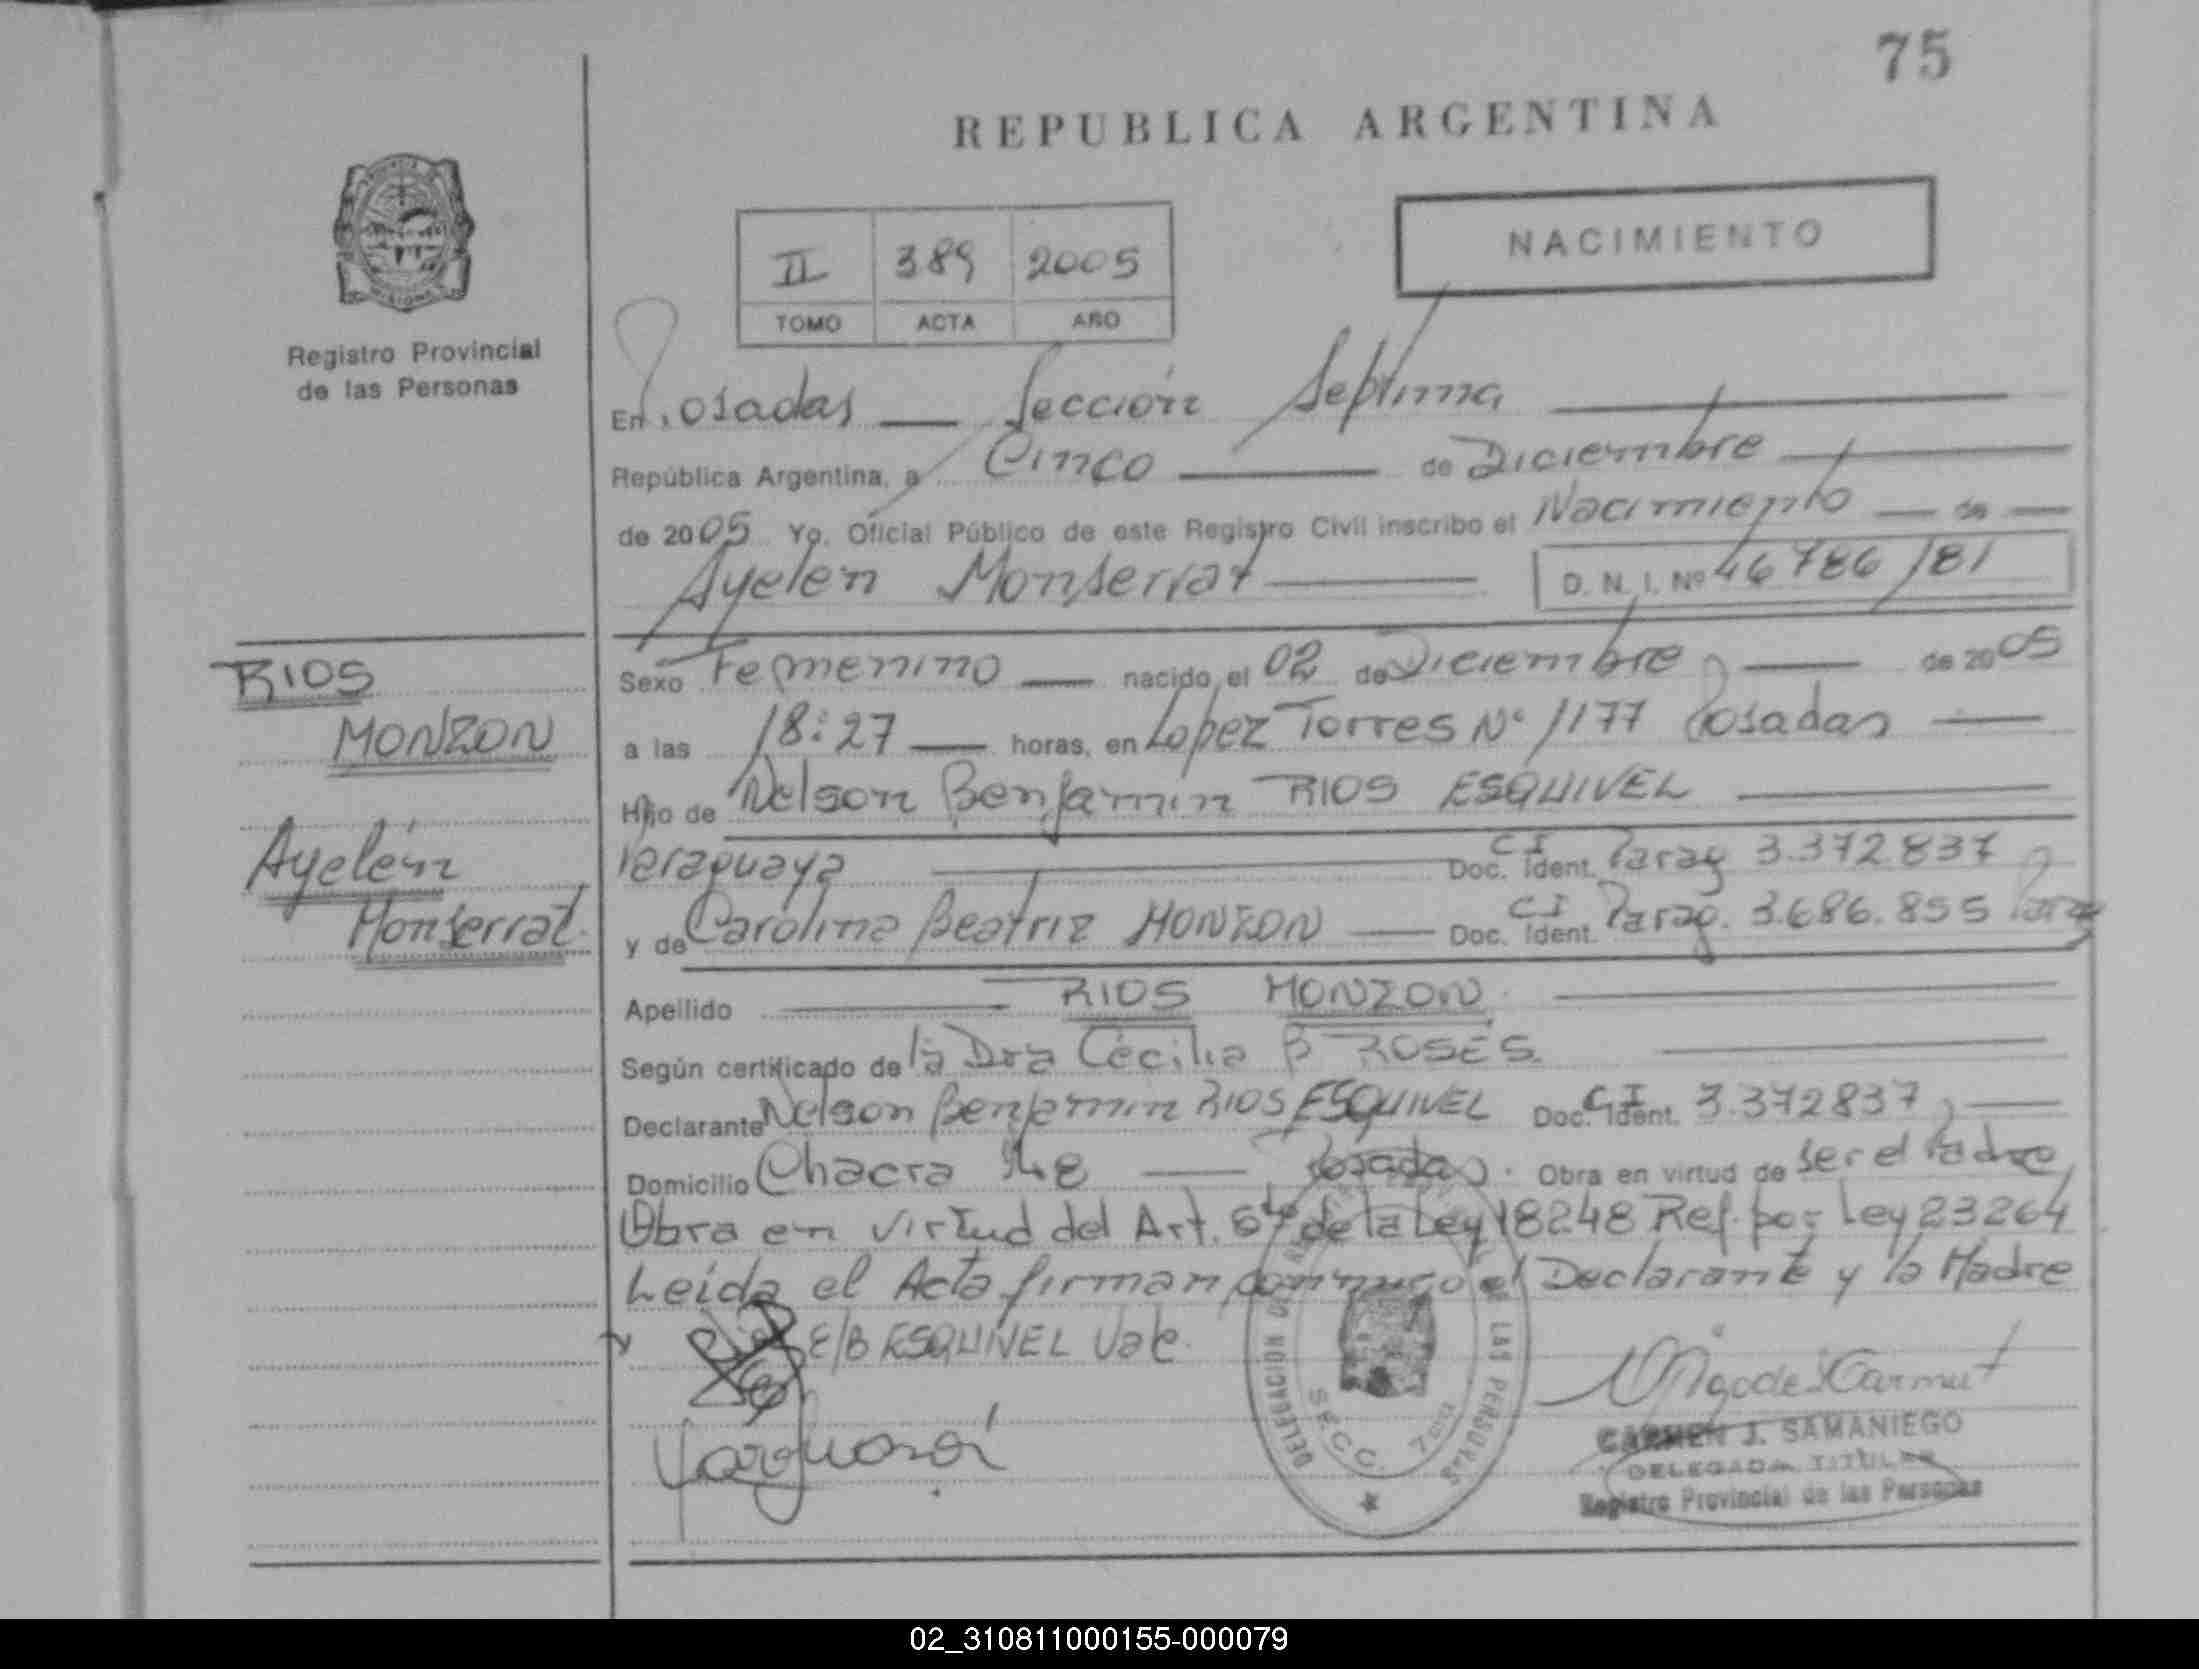 75
REPUBLICA ARGENTINA
NACIMIENTO
II 389 2005
TOMO ACTA AÑO
Registro Provincial
de las Personas
En Posadas Sección Septima
República Argentina, a Cinco de Diciembre
de 2005 Yo, Oficial Público de este Registro Civil inscribo el Nacimiento de
Ayelen Monserrat D. N. I. Nº 46786181
RIOS
MONZON
Ayelén
Monserrat
Sexo Femenino nacido el 02 de Diciembre de 2005
a las 18:27 horas, en Lopez Torres Nº 1177 Posadas
Hijo de Nelson Benjamin RIOS ESQUIVEL
Paraguaya Doc. Ident. CI Parag 3.372.837
y de Carolina Beatriz MONZON Doc. Ident. CI Parag. 3.686.855 Parag
Apellido RIOS MONZON
Según certificado de la Dra Cecilia B ROSES.
Declarante Nelson Benjamin RIOS ESQUIVEL Doc. Ident. CI 3.372837
Domicilio Chacra Posadas. Obra en virtud de ser el Padre
Obra en virtud del Art. 5to de la Ley 18248 Ref. por Ley 23264
Leida el Acta firman conmigo el Declarante y la Madre
E/B ESQUIVEL Vale.
DELEGACION DE LAS PERSONAS
SECC. 7ma
CARMEN J. SAMANIEGO
DELEGADA TITULAR
Registro Provincial de las Personas
02_310811000155-000079